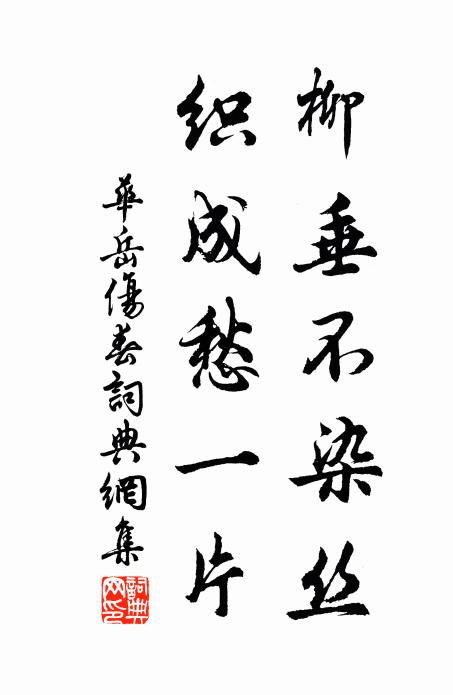 柳垂不染丝
织成愁一片
華岳傷春詞典網集
詞典網印